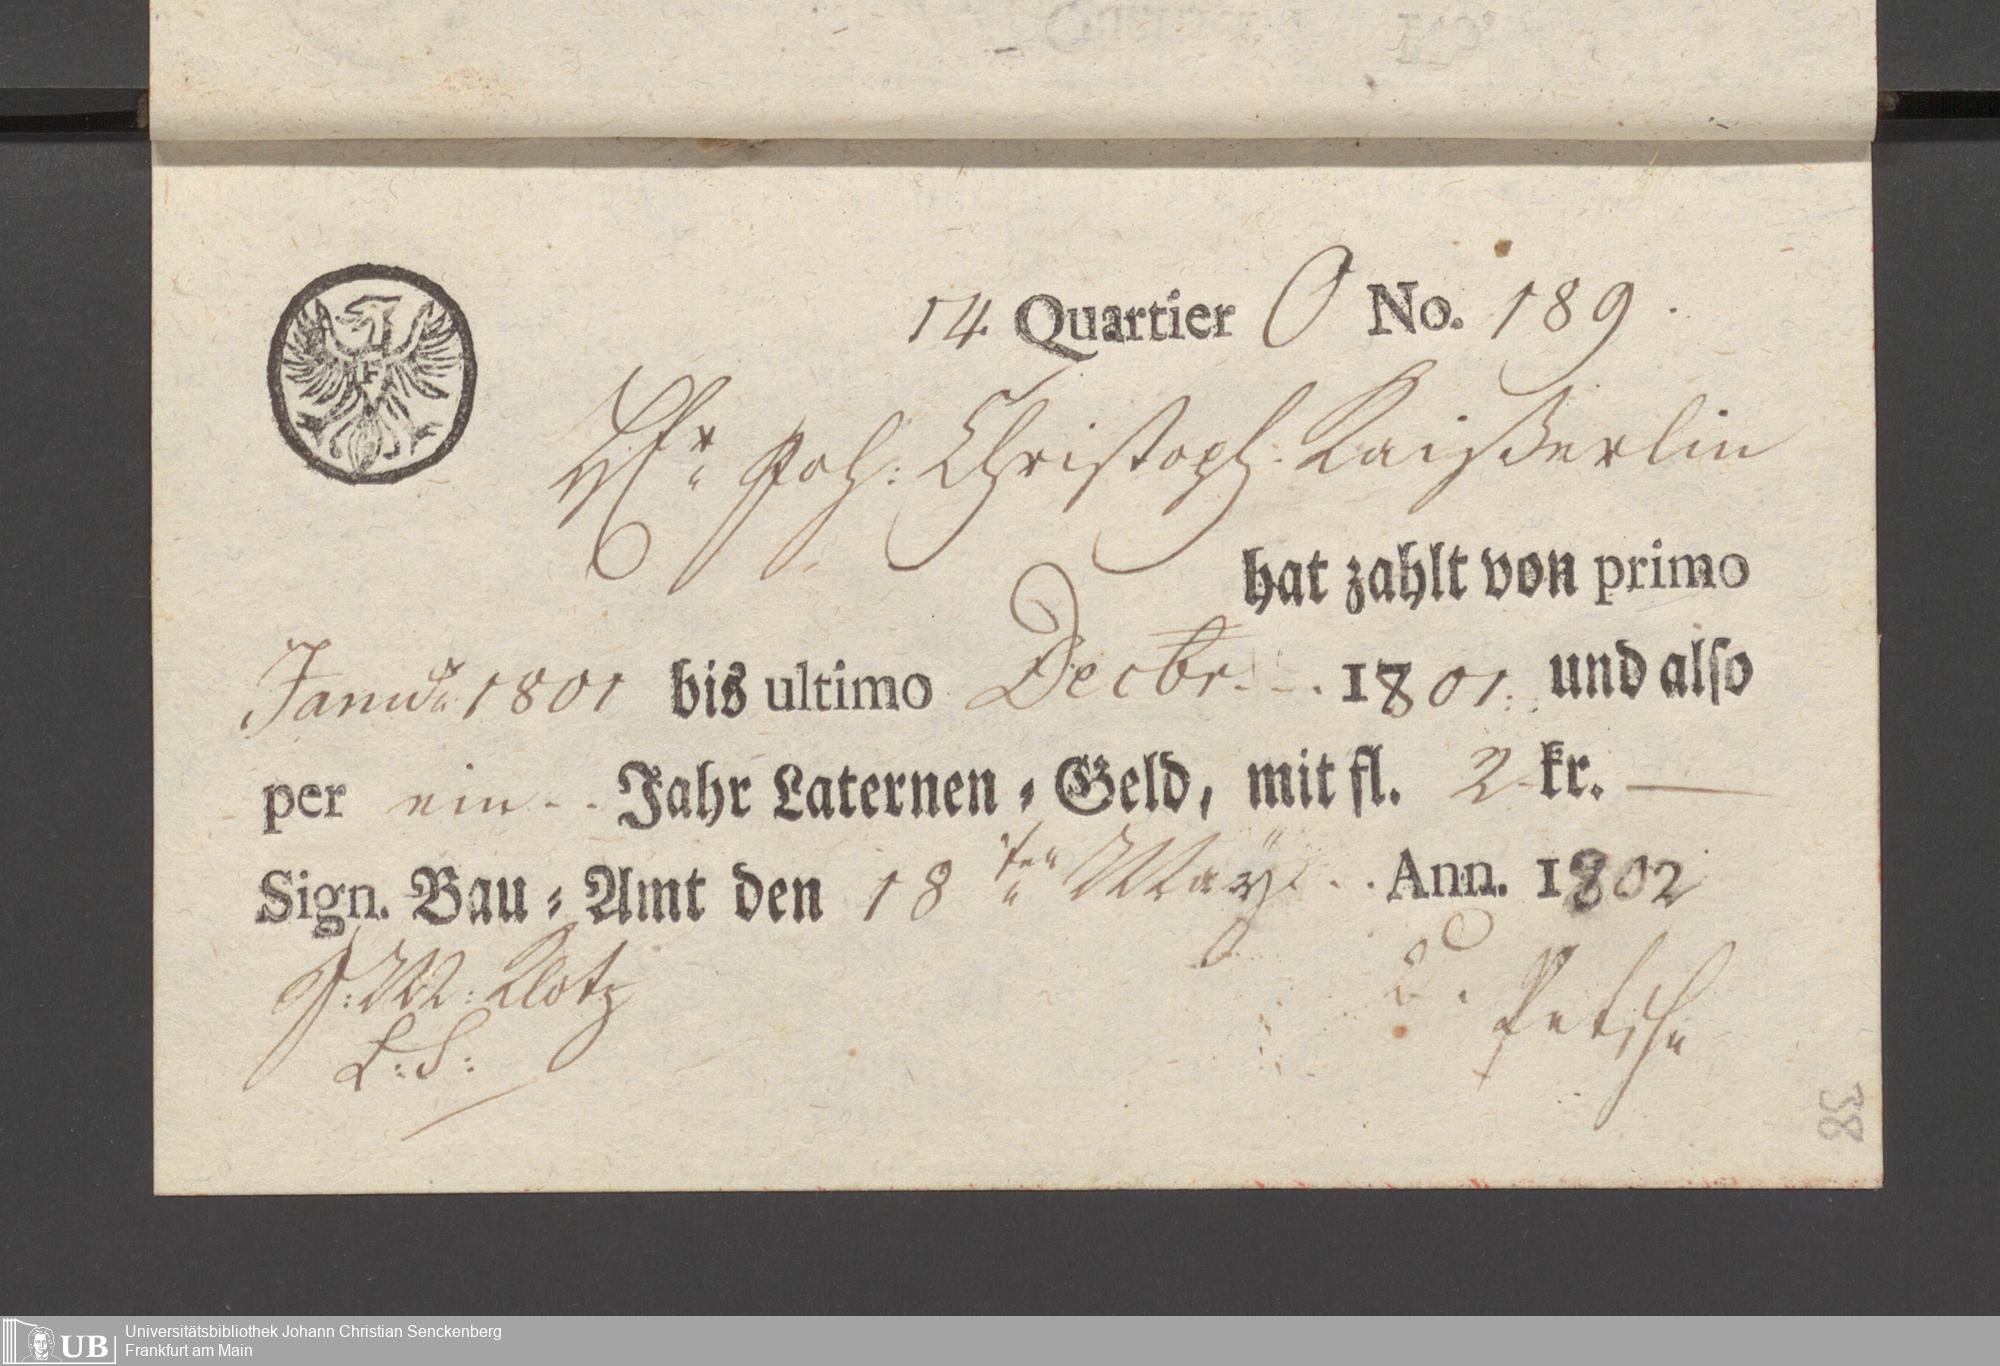 14 Quartier O No. 189.
F
Hr. Joh: Christoph: Kaißerlin
hat zahlt von primo
Janua. 1801 bis ultimo Decbr. 1801. und also
per ein Jahr Laternen-Geld, mit fl. 2 kr. —
Sign. Bau-Amt den 18ten May Ann. 1802
J: M: Klotz
L: S:
Petsche
28
UB Universitätsbibliothek Johann Christian Senckenberg
Frankfurt am Main